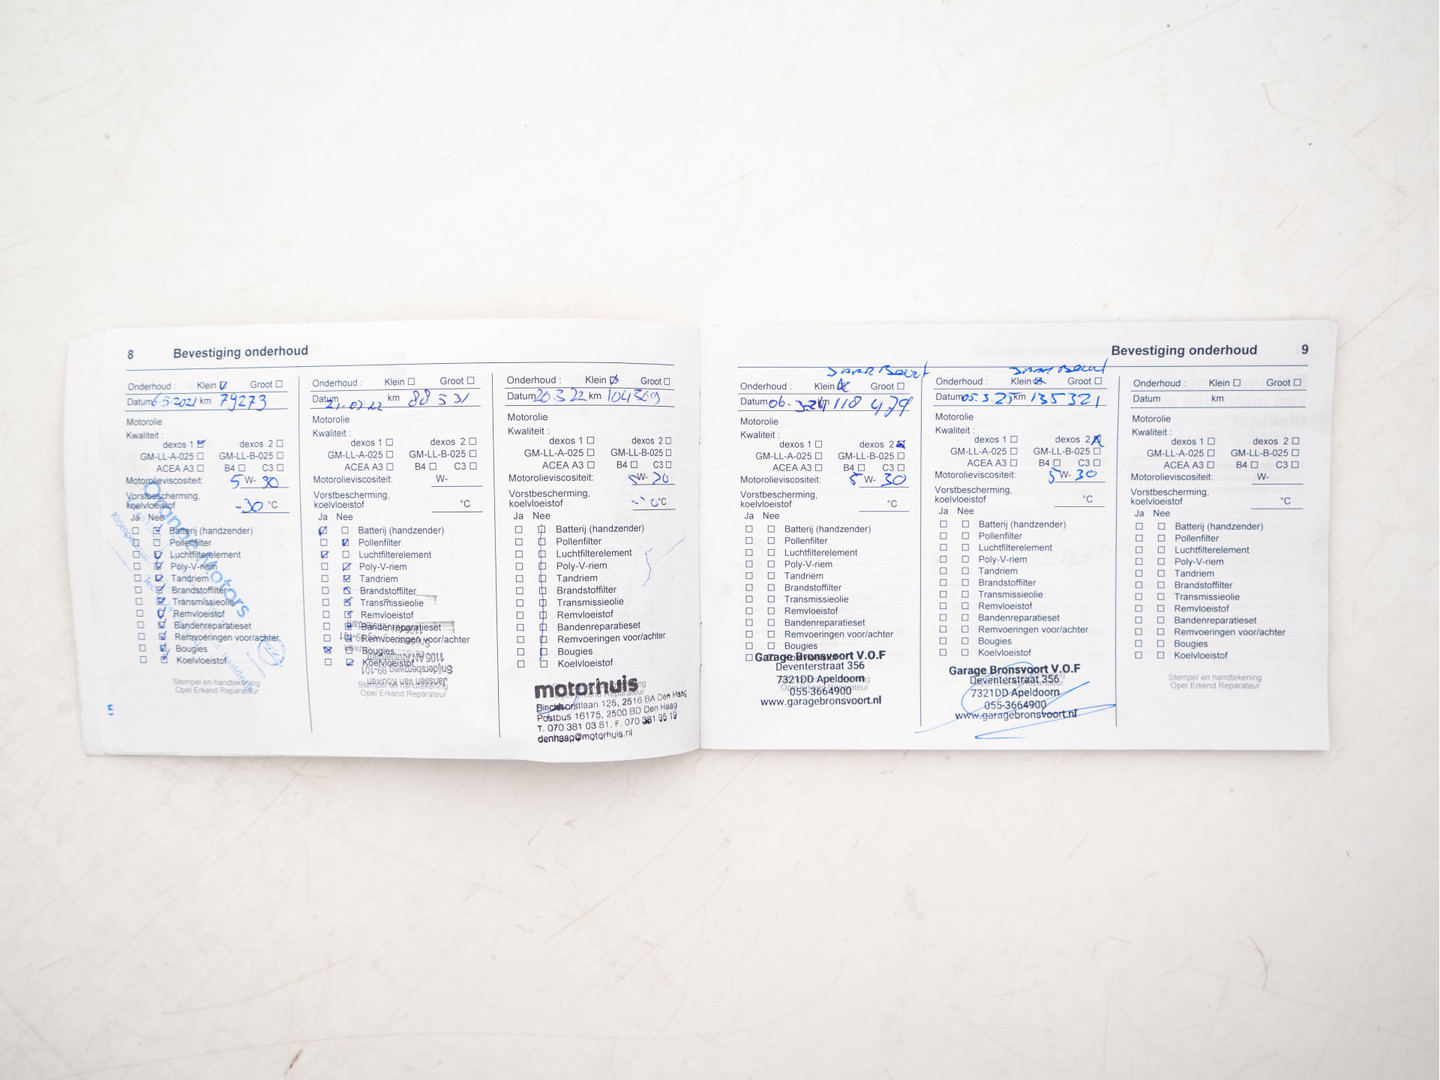 8 Bevestiging onderhoud
Onderhoud : Klein Groot
Datum 6.5.2021 km 79273
Motorolie
Kwaliteit :
dexos 1 dexos 2
GM-LL-A-025 GM-LL-B-025
ACEA A3 B4 C3
Motorolieviscositeit: 5 W- 30
Vorstbescherming,
koelvloeistof -30 °C
Ja Nee
Batterij (handzender)
Pollenfilter
Luchtfilterelement
Poly-V-riem
Tandriem
Brandstoffilter
Transmissieolie
Remvloeistof
Bandenreparatieset
Remvoeringen voor/achter
Bougies
Koelvloeistof
Stempel en handtekening
Opel Erkend Reparateur
Orange Motors
Onderhoud : Klein Groot
Datum km 88531
Motorolie
Kwaliteit :
dexos 1 dexos 2
GM-LL-A-025 GM-LL-B-025
ACEA A3 B4 C3
Motorolieviscositeit: W-
Vorstbescherming,
koelvloeistof °C
Ja Nee
Batterij (handzender)
Pollenfilter
Luchtfilterelement
Poly-V-riem
Tandriem
Brandstoffilter
Transmissieolie
Remvloeistof
Bandenreparatieset
Remvoeringen voor/achter
Bougies
Koelvloeistof
Snijdersbergweg 99-101
1105 AN Amsterdam
Janssen van Kouwen
Stempel en handtekening
Opel Erkend Reparateur
Onderhoud : Klein Groot
Datum 20.3.22 km 104369
Motorolie
Kwaliteit :
dexos 1 dexos 2
GM-LL-A-025 GM-LL-B-025
ACEA A3 B4 C3
Motorolieviscositeit: 5W-
Vorstbescherming,
koelvloeistof °C
Ja Nee
Batterij (handzender)
Pollenfilter
Luchtfilterelement
Poly-V-riem
Tandriem
Brandstoffilter
Transmissieolie
Remvloeistof
Bandenreparatieset
Remvoeringen voor/achter
Bougies
Koelvloeistof
motorhuis
Binckhorstlaan 125, 2516 BA Den Haag
Postbus 16175, 2500 BD Den Haag
T. 070 381 03 81, F. 070 381 95 19
denhaag@motorhuis.nl
Bevestiging onderhoud 9
Onderhoud : Klein Groot
Datum 06.3-24 118 479
Motorolie
Kwaliteit :
dexos 1 dexos 2
GM-LL-A-025 GM-LL-B-025
ACEA A3 B4 C3
Motorolieviscositeit: 5 W- 30
Vorstbescherming,
koelvloeistof °C
Ja Nee
Batterij (handzender)
Pollenfilter
Luchtfilterelement
Poly-V-riem
Tandriem
Brandstoffilter
Transmissieolie
Remvloeistof
Bandenreparatieset
Remvoeringen voor/achter
Bougies
Garage Bronsvoort V.O.F
Deventerstraat 356
7321DD Apeldoorn
055-3664900
www.garagebronsvoort.nl
Onderhoud : Klein Groot
Datum 05.3.25 km 135321
Motorolie
Kwaliteit :
dexos 1 dexos 2
GM-LL-A-025 GM-LL-B-025
ACEA A3 B4 C3
Motorolieviscositeit: 5 W- 30
Vorstbescherming,
koelvloeistof °C
Ja Nee
Batterij (handzender)
Pollenfilter
Luchtfilterelement
Poly-V-riem
Tandriem
Brandstoffilter
Transmissieolie
Remvloeistof
Bandenreparatieset
Remvoeringen voor/achter
Bougies
Koelvloeistof
Garage Bronsvoort V.O.F
Deventerstraat 356
7321DD Apeldoorn
055-3664900
www.garagebronsvoort.nl
Onderhoud : Klein Groot
Datum km
Motorolie
Kwaliteit :
dexos 1 dexos 2
GM-LL-A-025 GM-LL-B-025
ACEA A3 B4 C3
Motorolieviscositeit: W-
Vorstbescherming,
koelvloeistof °C
Ja Nee
Batterij (handzender)
Pollenfilter
Luchtfilterelement
Poly-V-riem
Tandriem
Brandstoffilter
Transmissieolie
Remvloeistof
Bandenreparatieset
Remvoeringen voor/achter
Bougies
Koelvloeistof
Stempel en handtekening
Opel Erkend Reparateur